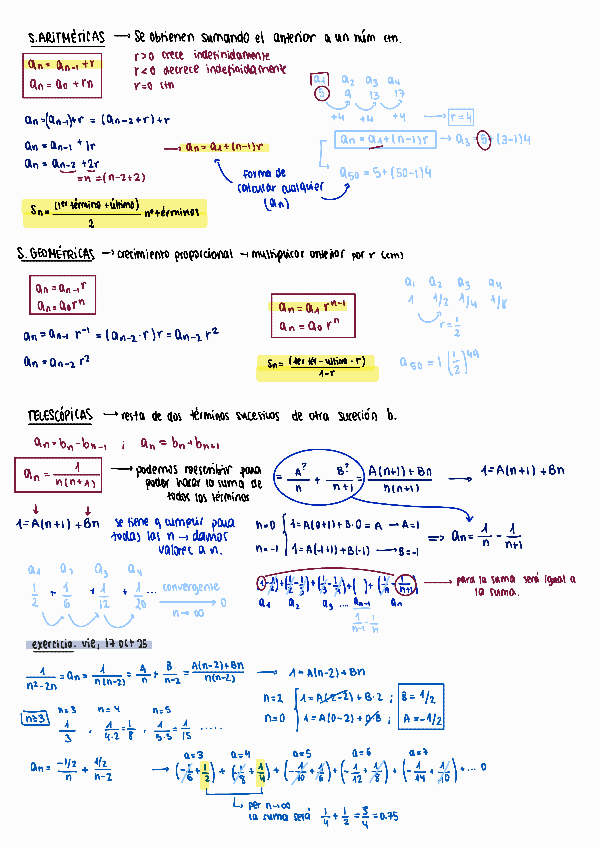 S. ARITMÉTICAS → Se obtienen sumando el anterior a un núm ctn.
an = an-1 + r
an = a0 + rn
r>0 crece indefinidamente
r<0 decrece indefinidamente
r=0 ctn
a1 a2 a3 a4
5 9 13 17
+4 +4 +4 → r=4
an=(an-1)+r = (an-2+r)+r
an = an-1 + 1r
an = an-2 + 2r
=n = (n-2+2)
→ an = a1+(n-1)r
an = a1+(n-1)r → a3 = 5+(3-1)4
forma de calcular cualquier (an)
a50 = 5+(50-1)4
Sn = (1er término + último) / 2 nº términos
S. GEOMÉTRICAS → crecimiento proporcional → multiplicar anterior por r (ctn)
an = an-1 r
an = a0 r^n
an = a1 r^n-1
an = a0 r^n
a1 a2 a3 a4
1 1/2 1/4 1/8
r = 1/2
an = an-1 r^-1 = (an-2 · r) r = an-2 r^2
an = an-2 r^2
Sn = (1er tér - último · r) / 1-r
a50 = 1 (1/2)^49
TELESCÓPICAS → resta de dos términos sucesivos de otra suceción b.
an = bn - bn-1 ; an = bn + bn+1
an = 1 / n(n+1) → podemos reescribir para poder hacer la suma de todos los términos
= A?/n + B?/n+1 = A(n+1) + Bn / n(n+1) → 1 = A(n+1) + Bn
1 = A(n+1) + Bn
se tiene q cumplir para todas las n → damos valores a n.
n=0 1 = A(0+1) + B·0 = A → A=1
n=-1 1 = A(-1+1) + B(-1) → B=-1
⇒ an = 1/n - 1/n+1
a1 a2 a3 a4
1/2 + 1/6 + 1/12 + 1/20 ... convergente → 0
n→∞
(1-1/2)+(1/2-1/3)+(1/3-1/4)+( )+(1/n-1/n+1) → para la suma será igual a la suma.
a1 a2 a3 ... an-1 an
1/n-1 - 1/n
exercicio. vie, 17 oct 25
1/n²-2n = an = 1/n(n-2) = A/n + B/n-2 = A(n-2)+Bn / n(n-2) → 1 = A(n-2) + Bn
n=2 1 = A(2-2) + B·2 ; B = 1/2
n=0 1 = A(0-2) + 0·B ; A = -1/2
n≥3 n=3 n=4 n=5
1/3 , 1/4·2 = 1/8 , 1/5·3 = 1/15 .....
a=3 a=4 a=5 a=6 a=7
an = -1/2/n + 1/2/n-2 → (-1/6+1/2) + (-1/8+1/4) + (-1/10+1/6) + (-1/12+1/8) + (-1/14+1/10) + ... 0
per n→∞
la suma será 1/4 + 1/2 = 3/4 = 0.75